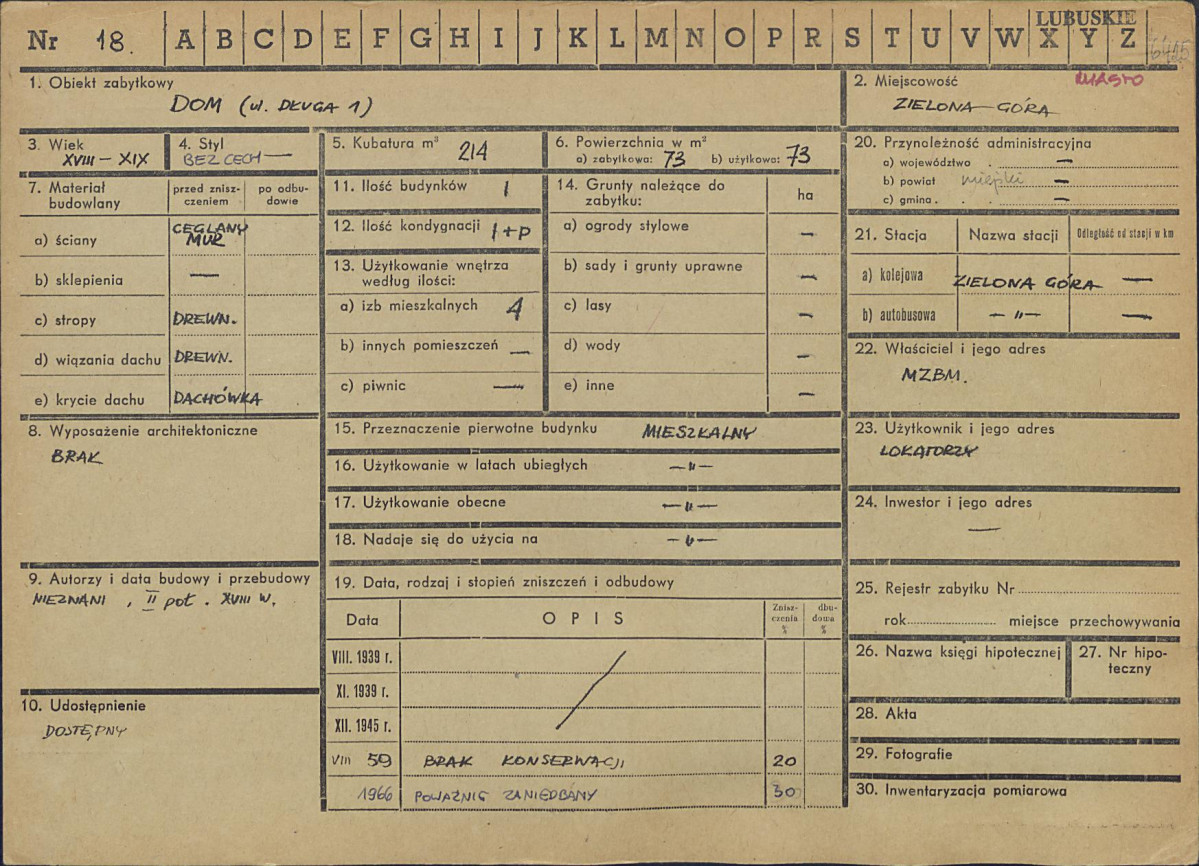 LUBUSKIE
Nr 18. A B C D E F G H I J K L M N O P R S T U V W X Y Z
1. Obiekt zabytkowy
DOM (ul. DŁUGA 1)
2. Miejscowość MIASTO
ZIELONA GÓRA
3. Wiek
XVIII – XIX
4. Styl
BEZ CECH —
5. Kubatura m³ 214
6. Powierzchnia w m²
a) zabytkowa: 73 b) użytkowa: 73
7. Materiał budowlany
przed zniszczeniem
po odbudowie
a) ściany CEGLANY MUR
b) sklepienia —
c) stropy DREWN.
d) wiązania dachu DREWN.
e) krycie dachu DACHÓWKA
8. Wyposażenie architektoniczne
BRAK
9. Autorzy i data budowy i przebudowy
NIEZNANI , II poł. XVIII W.
10. Udostępnienie
DOSTĘPNY
11. Ilość budynków 1
12. Ilość kondygnacji 1+P
13. Użytkowanie wnętrza
według ilości:
a) izb mieszkalnych 4
b) innych pomieszczeń —
c) piwnic —
14. Grunty należące do
zabytku:
ha
a) ogrody stylowe —
b) sady i grunty uprawne —
c) lasy —
d) wody —
e) inne —
15. Przeznaczenie pierwotne budynku MIESZKALNY
16. Użytkowanie w latach ubiegłych —"—
17. Użytkowanie obecne —"—
18. Nadaje się do użycia na —"—
19. Data, rodzaj i stopień zniszczeń i odbudowy
Data OPIS Zniszczenia % dbudowa %
VIII. 1939 r.
XI. 1939 r.
XII. 1945 r.
VIII 59 BRAK KONSERWACJI 20
1966 POWAŻNIE ZANIEDBANY 30
20. Przynależność administracyjna
a) województwo . —
b) powiat miejski —
c) gmina . . . —
21. Stacja Nazwa stacji Odległość od stacji w km
a) kolejowa ZIELONA GÓRA —
b) autobusowa —"— —
22. Właściciel i jego adres
MZBM.
23. Użytkownik i jego adres
LOKATORZY
24. Inwestor i jego adres
—
25. Rejestr zabytku Nr
rok miejsce przechowywania
26. Nazwa księgi hipotecznej
27. Nr hipoteczny
28. Akta
29. Fotografie
30. Inwentaryzacja pomiarowa